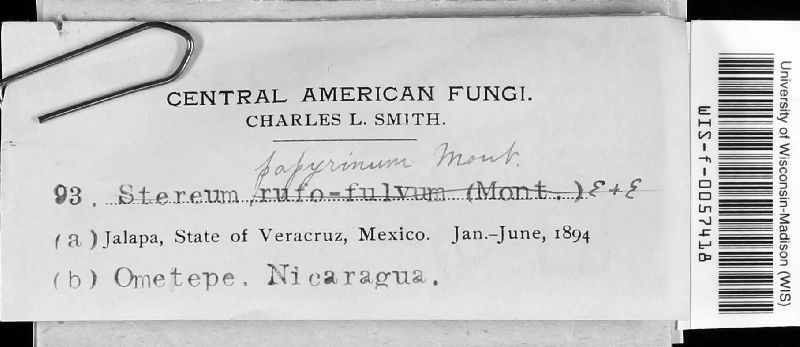 CENTRAL AMERICAN FUNGI.
CHARLES L. SMITH.
papyrinum Mont.
93. Stereum rufo-fulvum (Mont.) E + E
(a) Jalapa, State of Veracruz, Mexico. Jan.-June, 1894
(b) Ometepe. Nicaragua.
University of Wisconsin-Madison (WIS)
WIS-f-0057418